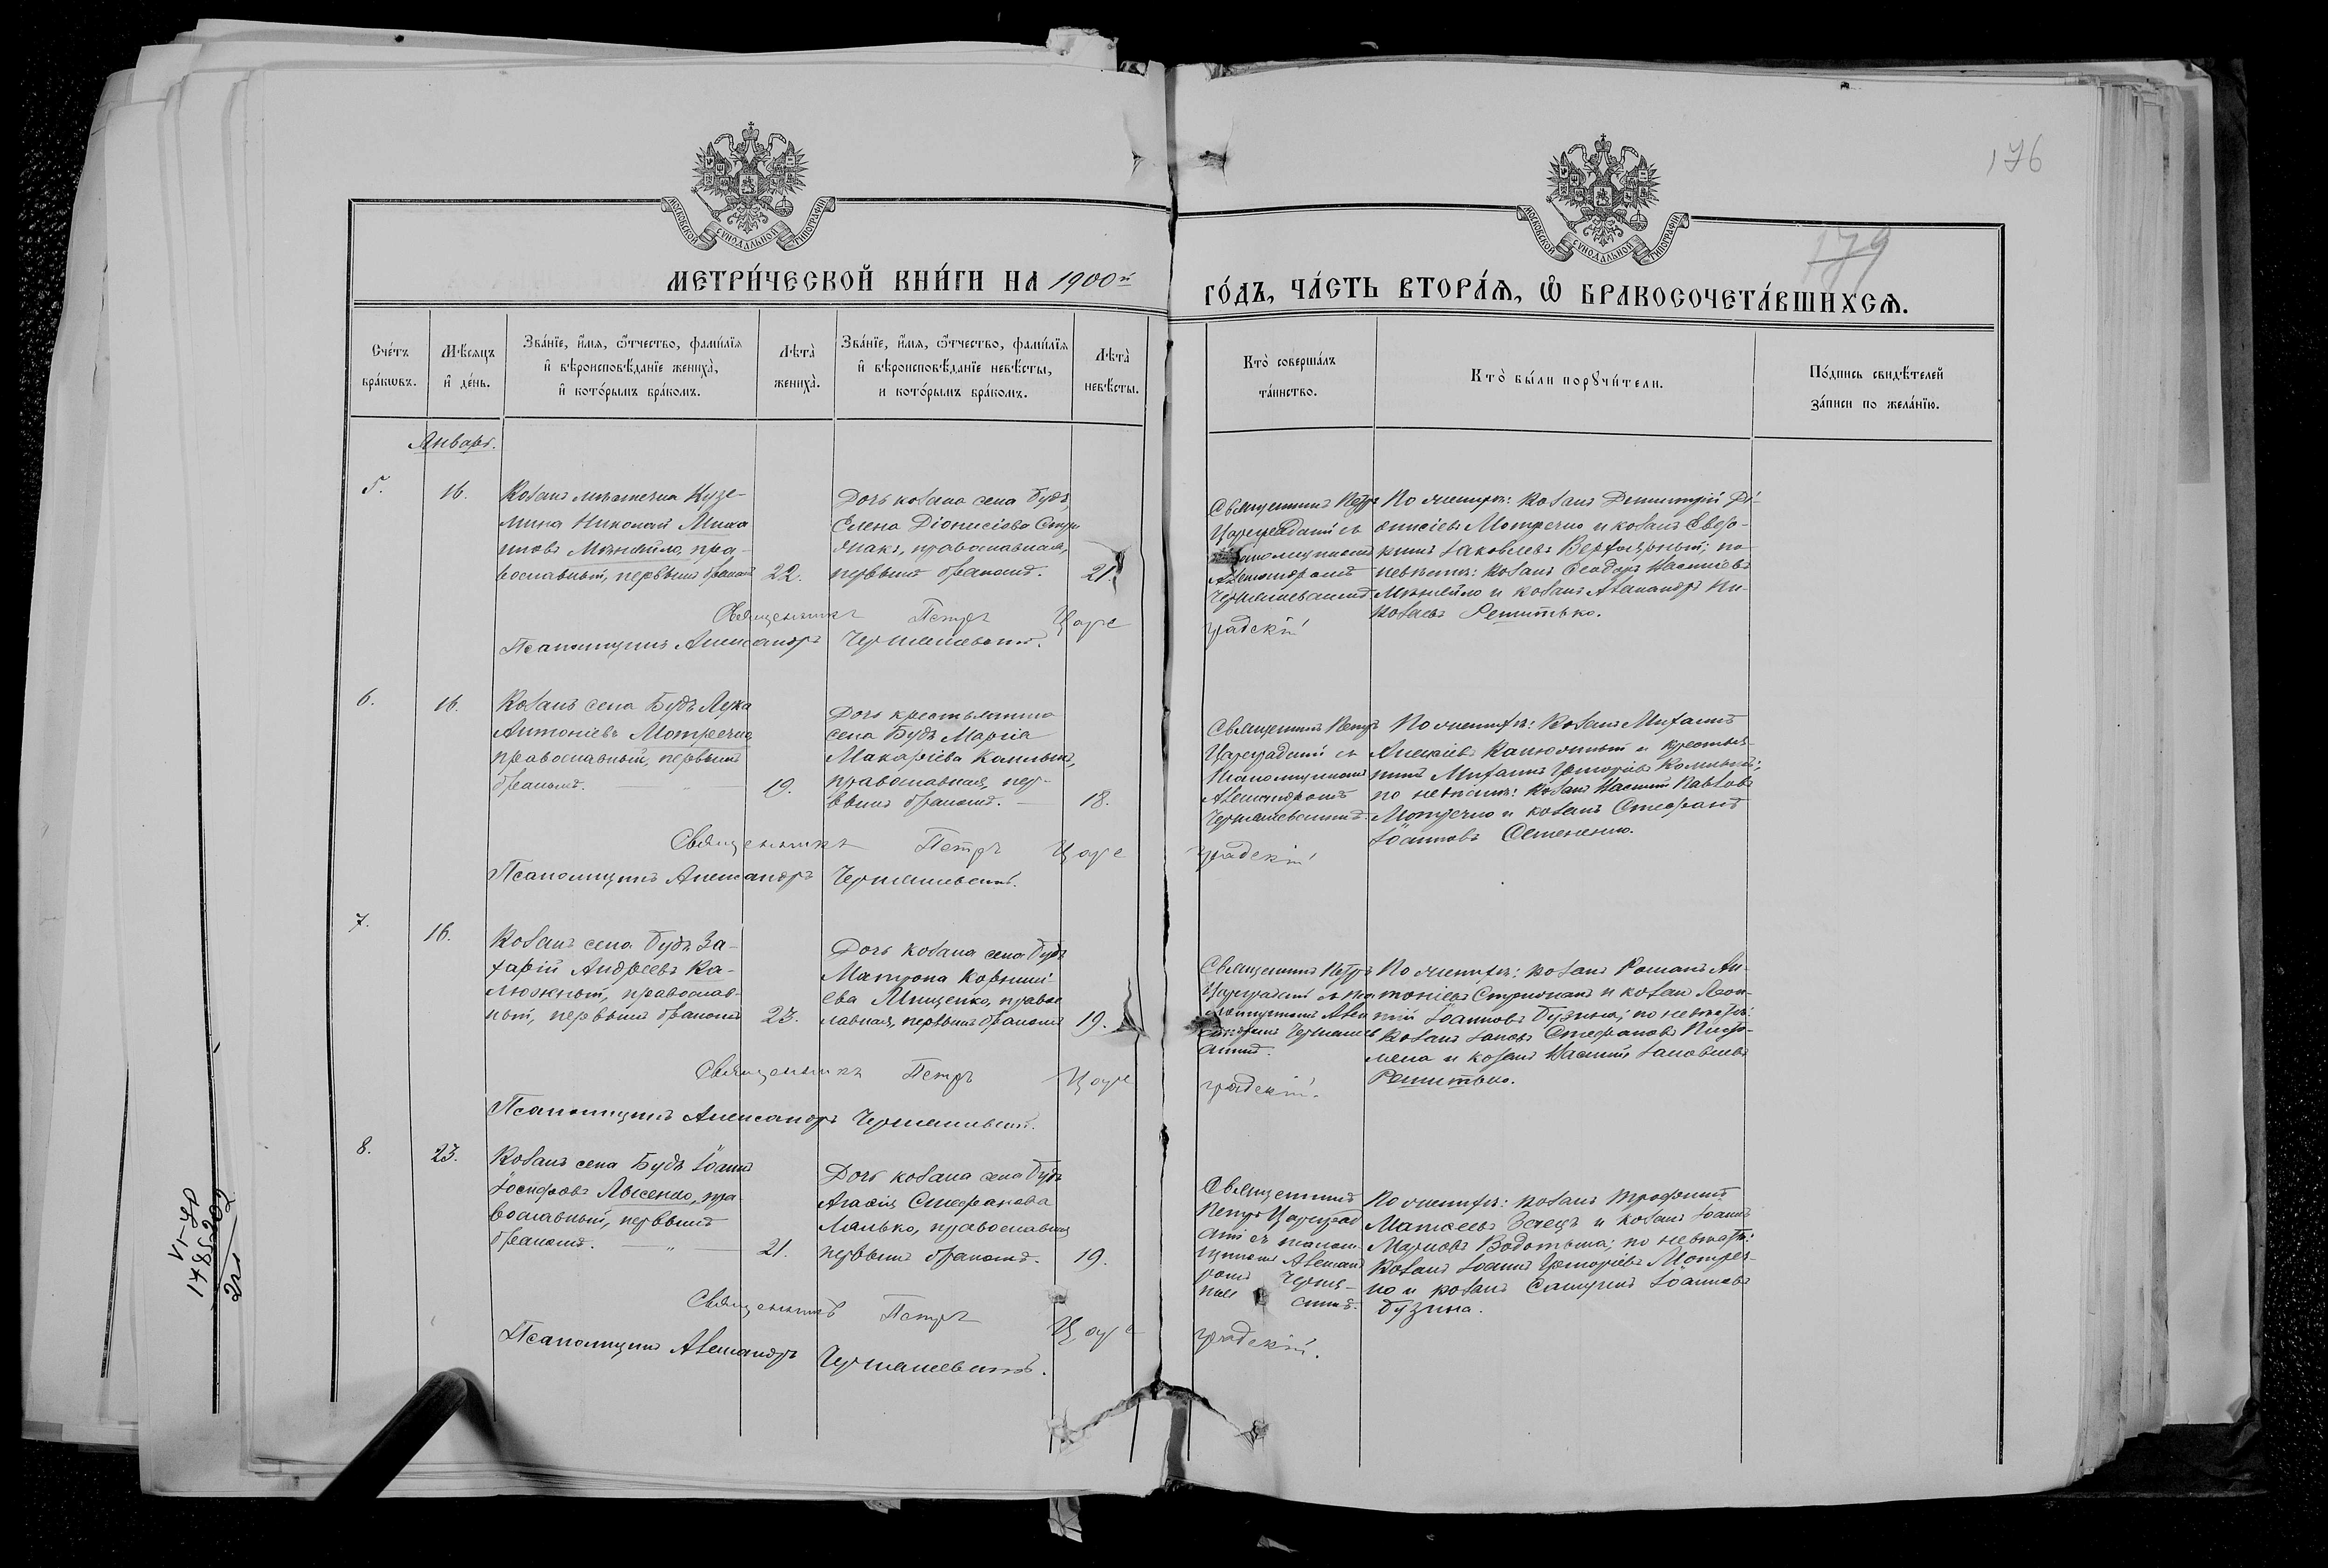 176
179
МОСКОВСКОЙ СѴНОДАЛЬНОЙ ТИПОГРАФІИ
МОСКОВСКОЙ СѴНОДАЛЬНОЙ ТИПОГРАФІИ
МЕТРИ́ЧЕСКОЙ КНИ́ГИ НА 1900й
ГО́ДЪ, ЧА́СТЬ ВТОРА́Ѧ, Ѽ БРАКОСОЧЕТА́ВШИХСѦ.
Сче́тъ
бра́кѡвъ.
Мѣ́сѧцъ
и҆ де́нь.
Зва́нїе, и҆́мѧ, ѻ҆́тчество, фами́лїѧ
и҆ вѣроисповѣ́данїе жениха̀,
и҆ кото́рымъ бра́комъ.
Лѣта̀
жениха̀.
Зва́нїе, и҆́мѧ, ѻ҆́тчество, фами́лїѧ
и҆ вѣроисповѣ́данїе невѣ́сты,
и кото́рымъ бра́комъ.
Лѣта̀
невѣ́сты.
Кто̀ соверша́лъ
та́инство.
Кто̀ бы́ли порꙋчи́тели.
По́дпись свидѣ́телей
за́писи по жела́нїю.
Январь.
5.
16.
Козакъ мѣстечка Кузе-
мина Николай Миха
иловъ Мѣняйло, пра-
вославный, первымъ бракомъ
22.
Дочь козака села Будъ,
Елена Діонисіева Стри
жакъ, православная,
первымъ бракомъ.
21.
Священникъ Петръ
Цареградскій съ
псаломщикомъ
Александромъ
Чернышевскимъ
По женихѣ: козакъ Димитрій Ді-
онисіевъ Мотречко и козакъ Евдо-
кимъ Іаковлевъ
по
невѣстѣ: козакъ Ѳеодоръ Василіевъ
Мѣняйло и козакъ Александръ Ни-
колаевъ Решитько.
Священникъ Петръ Царе
градскій
Псаломщикъ Александръ Чернышевскій.
6.
16.
Козакъ села Будъ Лука
Антоніевъ Мотречко
православный, первымъ
бракомъ. — „ —
19.
Дочь крестьянина
села Будъ Марія
Макаріева
православная, пер-
вымъ бракомъ. —
18.
Священникъ Петръ
Цареградскій съ
Псаломщикомъ
Александромъ
Чернышевскимъ.
По женихѣ: козакъ Михаилъ
Алексіевъ Калюжный и крестья-
нинъ Михаилъ Григоріевъ
по невѣстѣ: козакъ Василій Павловъ
Мотречко и козакъ Стефанъ
Іоанновъ Семененко.
Священникъ Петръ Царе
градскій
Псаломщикъ Александръ Чернышевскій.
7.
16.
Козакъ села Будъ За-
харій Андреевъ Ка-
люжный, православ-
ный, первымъ бракомъ
23.
Дочь козака села Будъ
Матрона Корнилі-
ева Мищенко, правос
лавная, первымъ бракомъ
19.
Священникъ Петръ
Цареградскій съ пса
ломщикомъ Алек
сандромъ Чернышев
скимъ.
По женихѣ: козакъ Романъ Ан-
тоніевъ Стрижакъ и козакъ Леон-
тій Іоанновъ Бузина; по невѣстѣ:
Козакъ Іаковъ Стефановъ
и козакъ Василій Іаковлевъ
Решитько.
Священникъ Петръ Царе
градскій.
Псаломщикъ Александръ Чернышевскій.
8.
23.
Козакъ села Будъ Іоаннъ
Іосифовъ Лысенко, пра-
вославный, первымъ
бракомъ. — „ —
21.
Дочь козака села Будъ
Агафія Стефанова
Малько, православная
первымъ бракомъ.
19.
Священникъ
Петръ Цареград
скій съ псалом
щикомъ Александ
ромъ Черны-
скимъ.
По женихѣ: козакъ Трофимъ
Матѳеевъ Заецъ и козакъ Іоаннъ
Марковъ Водотыка; по невѣстѣ:
Козакъ Іоаннъ Григоріевъ Мотреч-
ко и козакъ Самуилъ Іоанновъ
Бузина.
Священникъ Петръ Царе
градскій.
Псаломщикъ Александръ Чернышевскій.